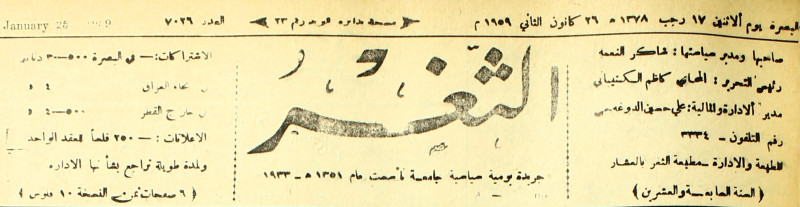 البصرة يوم ألاثنين ١٧ رجب ١٣٧٨ ھ ٢٦ كانون الثاني ١٩٥٩ م
مسجلة بدائرة البريد برقم ٢٣
العدد ٧٠٢٦
January 26
صاحبها ومدير سياستها : شاكر النعمه
رئيس التحرير : المحامي كاظم
مدير الادارة والمالية : علي حسين
رقم التلفون - ٣٣٣٤
المطبعة والادارة - مطبعة الثغر بالعشار
( السنة السابعة والعشرين )
الثغر
جريدة يومية سياسية جامعة تأسست عام ١٣٥١ ھ - ١٩٣٣
الاشتراكات :- في البصرة ٥٠٠-٣ دنانير
انحاء العراق ٤
خارج القطر ٥٠٠-٤
الاعلانات :- ٢٥٠ فلساً للعقد الواحد
ولمدة طويلة تراجع بشأنها الاداره
( ٦ صفحات ثمن النسخة ١٠ فلوس )